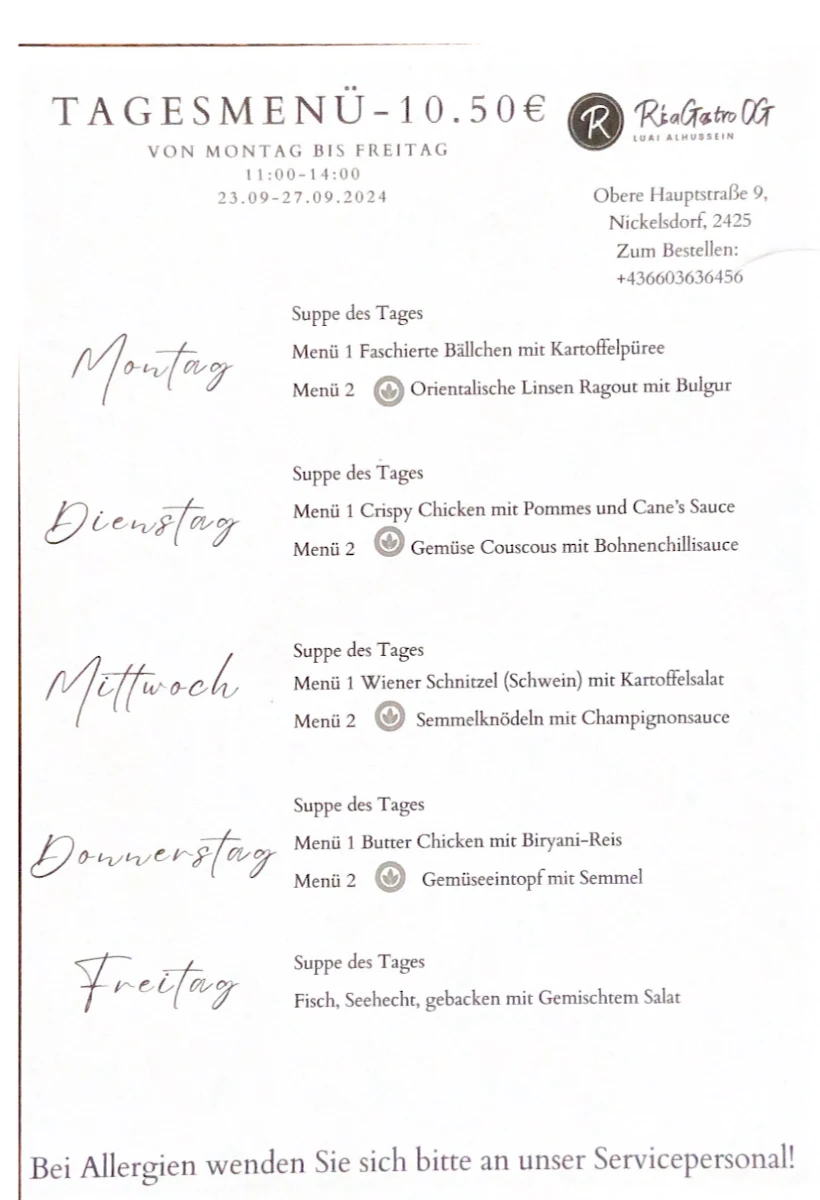 TAGESMENÜ-10.50€
VON MONTAG BIS FREITAG
11:00-14:00
23.09-27.09.2024
R
RiaGatro OG
LUAI ALHUSSEIN
Obere Hauptstraße 9,
Nickelsdorf, 2425
Zum Bestellen:
+436603636456
Montag
Suppe des Tages
Menü 1 Faschierte Bällchen mit Kartoffelpüree
Menü 2 Orientalische Linsen Ragout mit Bulgur
Dienstag
Suppe des Tages
Menü 1 Crispy Chicken mit Pommes und Cane's Sauce
Menü 2 Gemüse Couscous mit Bohnenchillisauce
Mittwoch
Suppe des Tages
Menü 1 Wiener Schnitzel (Schwein) mit Kartoffelsalat
Menü 2 Semmelknödeln mit Champignonsauce
Donnerstag
Suppe des Tages
Menü 1 Butter Chicken mit Biryani-Reis
Menü 2 Gemüseeintopf mit Semmel
Freitag
Suppe des Tages
Fisch, Seehecht, gebacken mit Gemischtem Salat
Bei Allergien wenden Sie sich bitte an unser Servicepersonal!